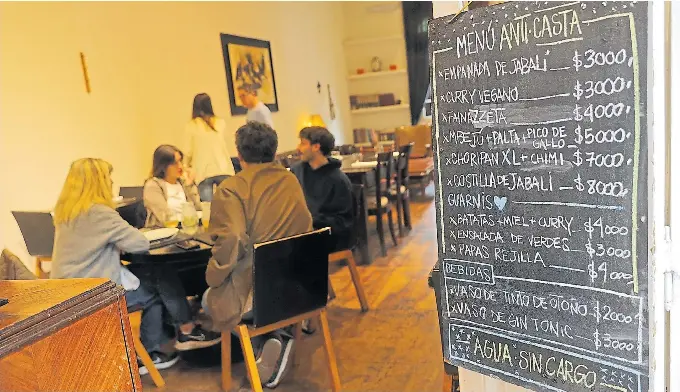 MENÚ ANTI-CASTA
x EMPANADA DE JABALÍ $3000,
x CURRY VEGANO $3000,
x FAINAZZETA $4000,
x MBEJÚ + PALTA + PICO DE GALLO $5000,
x CHORIPAN XL + CHIMI $7000,
x COSTILLA DE JABALÍ $8000,
GUARNIS
x BATATAS + MIEL + CURRY $4000
x ENSALADA DE VERDES $3000
x PAPAS REJILLA $4000
BEBIDAS
x VASO DE TINTO DE OTOÑO $2000,
x VASO DE GIN TONIC $3000
AGUA SIN CARGO